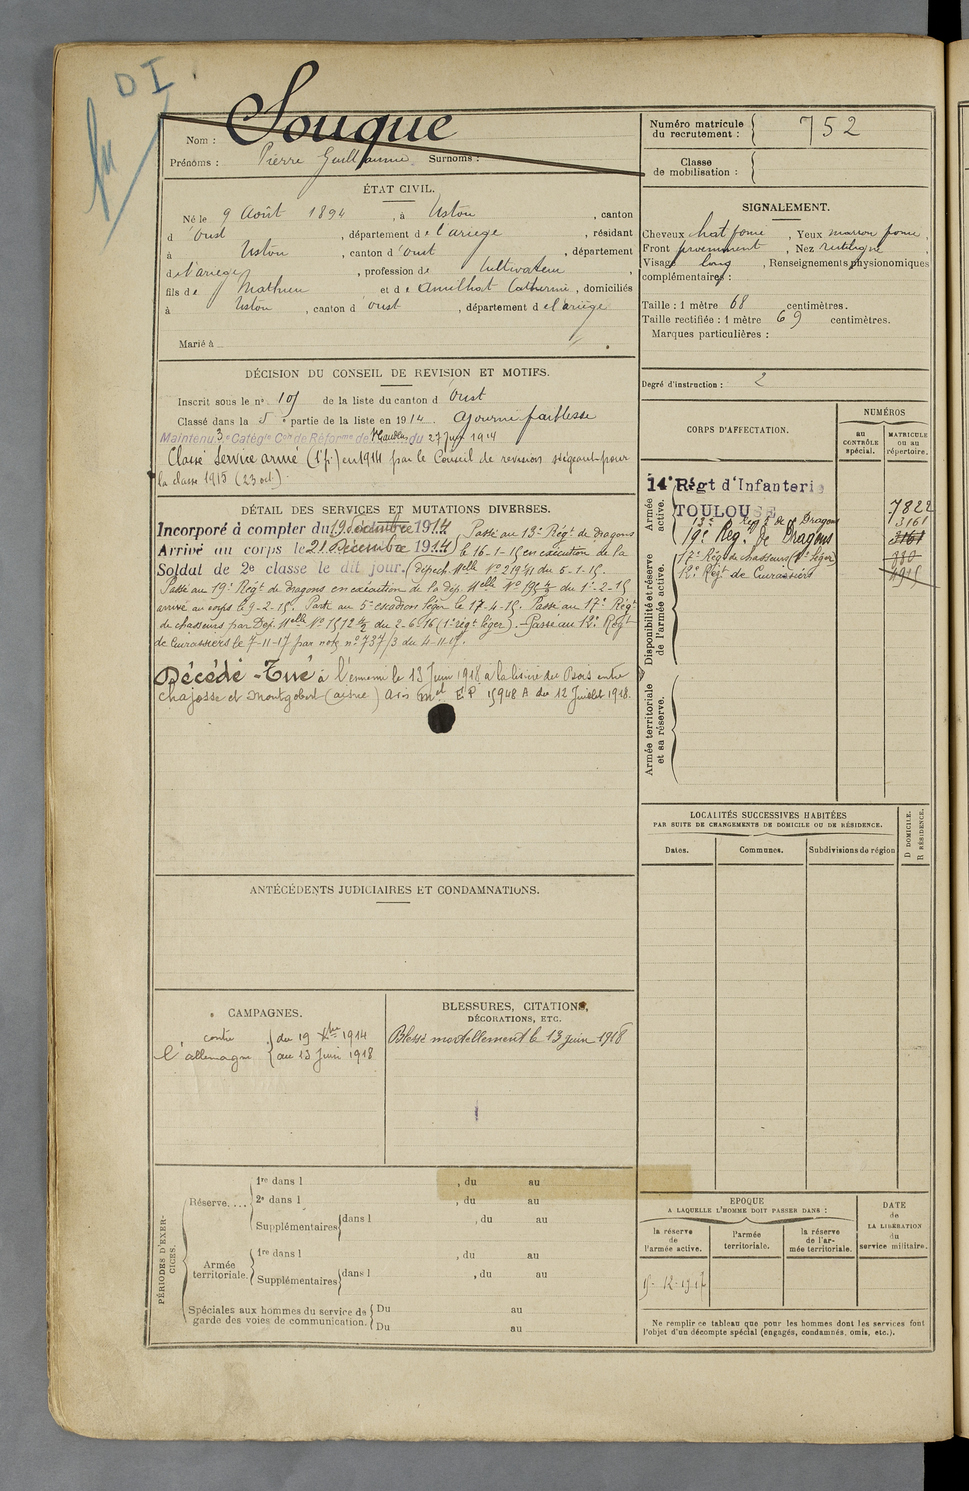 D I
Nom : Souque
Prénoms : Pierre Guillaume Surnoms :
Numéro matricule
du recrutement : 752
Classe
de mobilisation :
ÉTAT CIVIL.
Né le 9 Août 1894, à Ustou, canton
d'Oust, département de l'ariège, résidant
à Ustou, canton d'oust, département
de l'ariège, profession de Cultivateur,
fils de Mathieu et de Amilhat Catherine, domiciliés
à Ustou, canton d'oust, département de l'ariège
Marié à
SIGNALEMENT.
Cheveux chat foncé, Yeux marron foncé,
Front proeminent, Nez rectiligne,
Visage long, Renseignements physionomiques
complémentaires :
Taille : 1 mètre 68 centimètres.
Taille rectifiée : 1 mètre 69 centimètres.
Marques particulières :
Degré d'instruction : 2
DÉCISION DU CONSEIL DE REVISION ET MOTIFS.
Inscrit sous le n° de la liste du canton d'Oust
Classé dans la 5e partie de la liste en 1914. Ajourné faiblesse
Maintenu 3e Catégie Con de Réforme de St Gaudens du 27 1914
Classé Service armé (1e p.) en 1914 par le Conseil de revision siégeant pour
la classe 1915 (23 oct.).
DÉTAIL DES SERVICES ET MUTATIONS DIVERSES.
Incorporé à compter du 19 décembre 1914
Arrivé au corps le 21 Décembre 1914
Soldat de 2e classe le dit jour.
Passé au 13e Régt de dragons
le 16-1-15 en exécution de la
(dépech Melle No 219 du 5-1-15.
Passé au 19e Régt de dragons en exécution de la dép. Melle No du 1-2-15
arrivé au corps le 9-2-15. Passé au 5e escadron léger le 17-4-15. Passé au 17e Régt
de chasseurs par Dep. Melle No 1512 du 2-6-16 (1e régt léger). Passé au 12e Régt
de Cuirassiers le 7-11-17 par note no 737/3 du 4-11-17.
Décédé - Tué à l'ennemi le 13 Juin 1918 a la lisière du Bois entre
Chajosse et Montgobert (aisne) avis mel E P 15948 A de 12 Juillet 1918.
CORPS D'AFFECTATION.
NUMÉROS
au
CONTRÔLE
spécial.
MATRICULE
ou au
répertoire.
Armée
active.
14e Régt d'Infanterie
TOULOUSE 7822
13e Régt de Dragons 3161
19e Reg. de Dragons 3161
17e Rég de chasseurs (1e léger) 980
12e Régt de Cuirassiers 4915
Disponibilité et réserve
de l'armée active.
Armée territoriale
et sa réserve.
LOCALITÉS SUCCESSIVES HABITÉES
PAR SUITE DE CHANGEMENTS DE DOMICILE OU DE RÉSIDENCE.
Dates. Communes. Subdivisions de région
D DOMICILE.
R RÉSIDENCE.
ANTÉCÉDENTS JUDICIAIRES ET CONDAMNATIONS.
CAMPAGNES.
contre
l'allemagne
du 19 Xbre 1914
au 13 Juin 1918
BLESSURES, CITATIONS,
DÉCORATIONS, ETC.
Blessé mortellement le 13 juin 1918
PÉRIODES D'EXERCICES.
Réserve....
1re dans l , du au
2e dans l , du au
Supplémentaires dans l , du au
Armée
territoriale.
1re dans l , du au
Supplémentaires dans l , du au
Spéciales aux hommes du service de
garde des voies de communication.
Du au
Du au
EPOQUE
A LAQUELLE L'HOMME DOIT PASSER DANS :
la réserve
de
l'armée active.
l'armée
territoriale.
la réserve
de l'ar-
mée territoriale.
DATE
de
LA LIBÉRATION
du
service militaire.
15-12-1917
Ne remplir ce tableau que pour les hommes dont les services font
l'objet d'un décompte spécial (engagés, condamnés, omis, etc.).